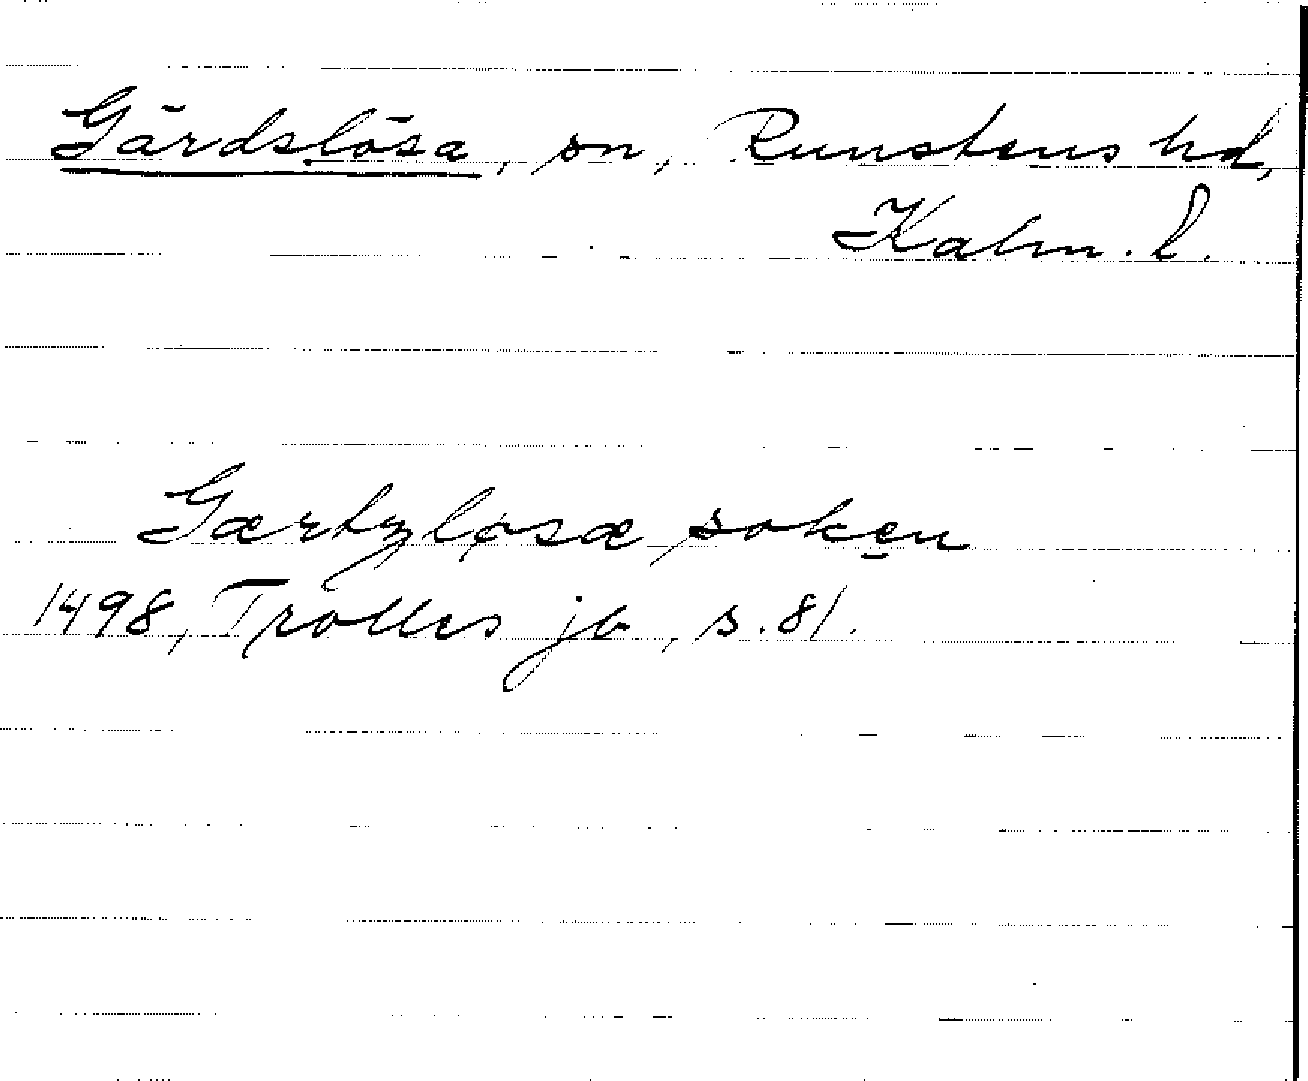 Gärdslösa, sn, Runstens hd,
Kalm. l.
Gærtzløsæ soken
1498, Trolles jb, s. 81.